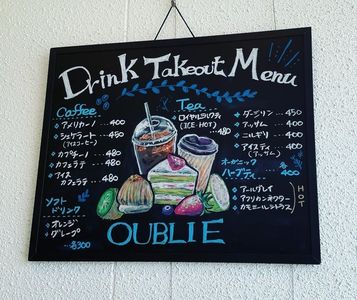 Drink Takeout Menu
Coffee
アメリカーノ ... 400
シェケラート ... 450
(アイスコーヒー)
カプチーノ ... 480
カフェラテ ... 480
アイス
カフェラテ ... 480
ソフト
ドリンク
オレンジ
グレープ
... 各300
Tea
ロイヤルミルクティ
(ICE・HOT)
480
ダージリン ... 450
アッサム ... 400
ニルギリ ... 400
アイスティ ... 400
(アッサム)
オーガニック
ハーブティ ... 400
アールグレイ
アフリカンネクター
カモミールシトラス
HOT
OUBLIE